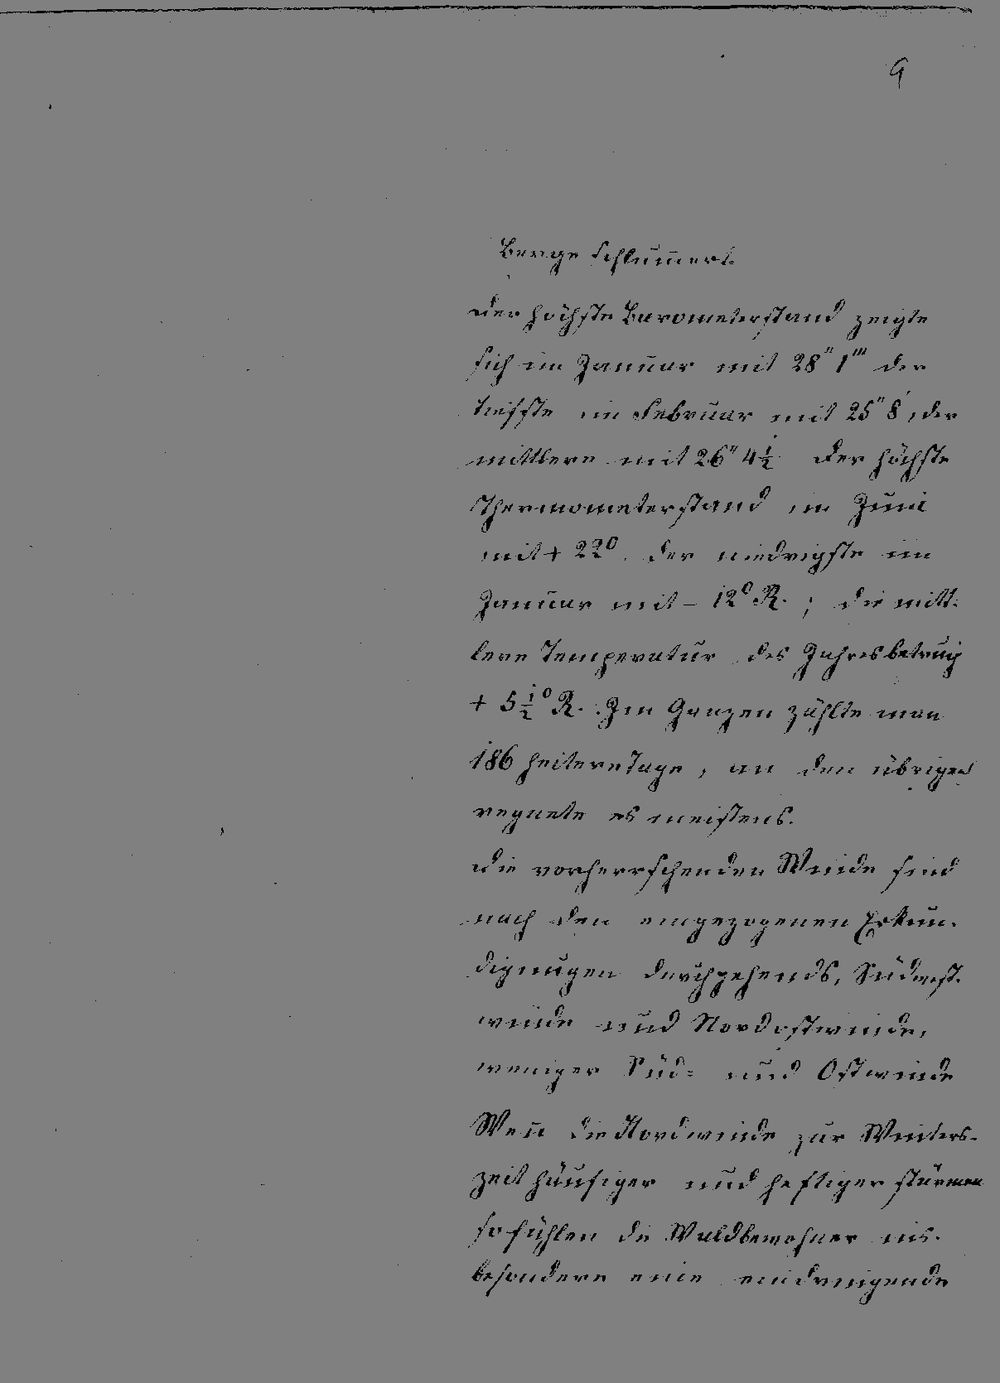 9
Berge schlum̄ert.
Der höchste Barometerstand zeigte
sich im Januar mit 28" 1‴ der
tiefste im Februar mit 25" 8', der
mittlere mit 26" 4½ Der höchste
Thermometerstand im Juni
mit + 22⁰. der niedrigste im
Januar mit – 12⁰ R. ; die mitt-
lere Temperatur des Jahres betrug
+ 5½⁰ R. Im Ganzen zählte man
186 heitere Tage, an den übrigen
regnete es meistens.
Die vorherrschenden Winde sind
nach den eingezogenen Erkun-
digungen durchgehends, Südwest-
winde und Nordostwinde,
weniger Süd= und Ostwinde
Wen̄ die Nordwinde zur Winters-
zeit häufiger und heftiger stürmen
so fühlen die Waldbewohner ins-
besondere eine eindringende